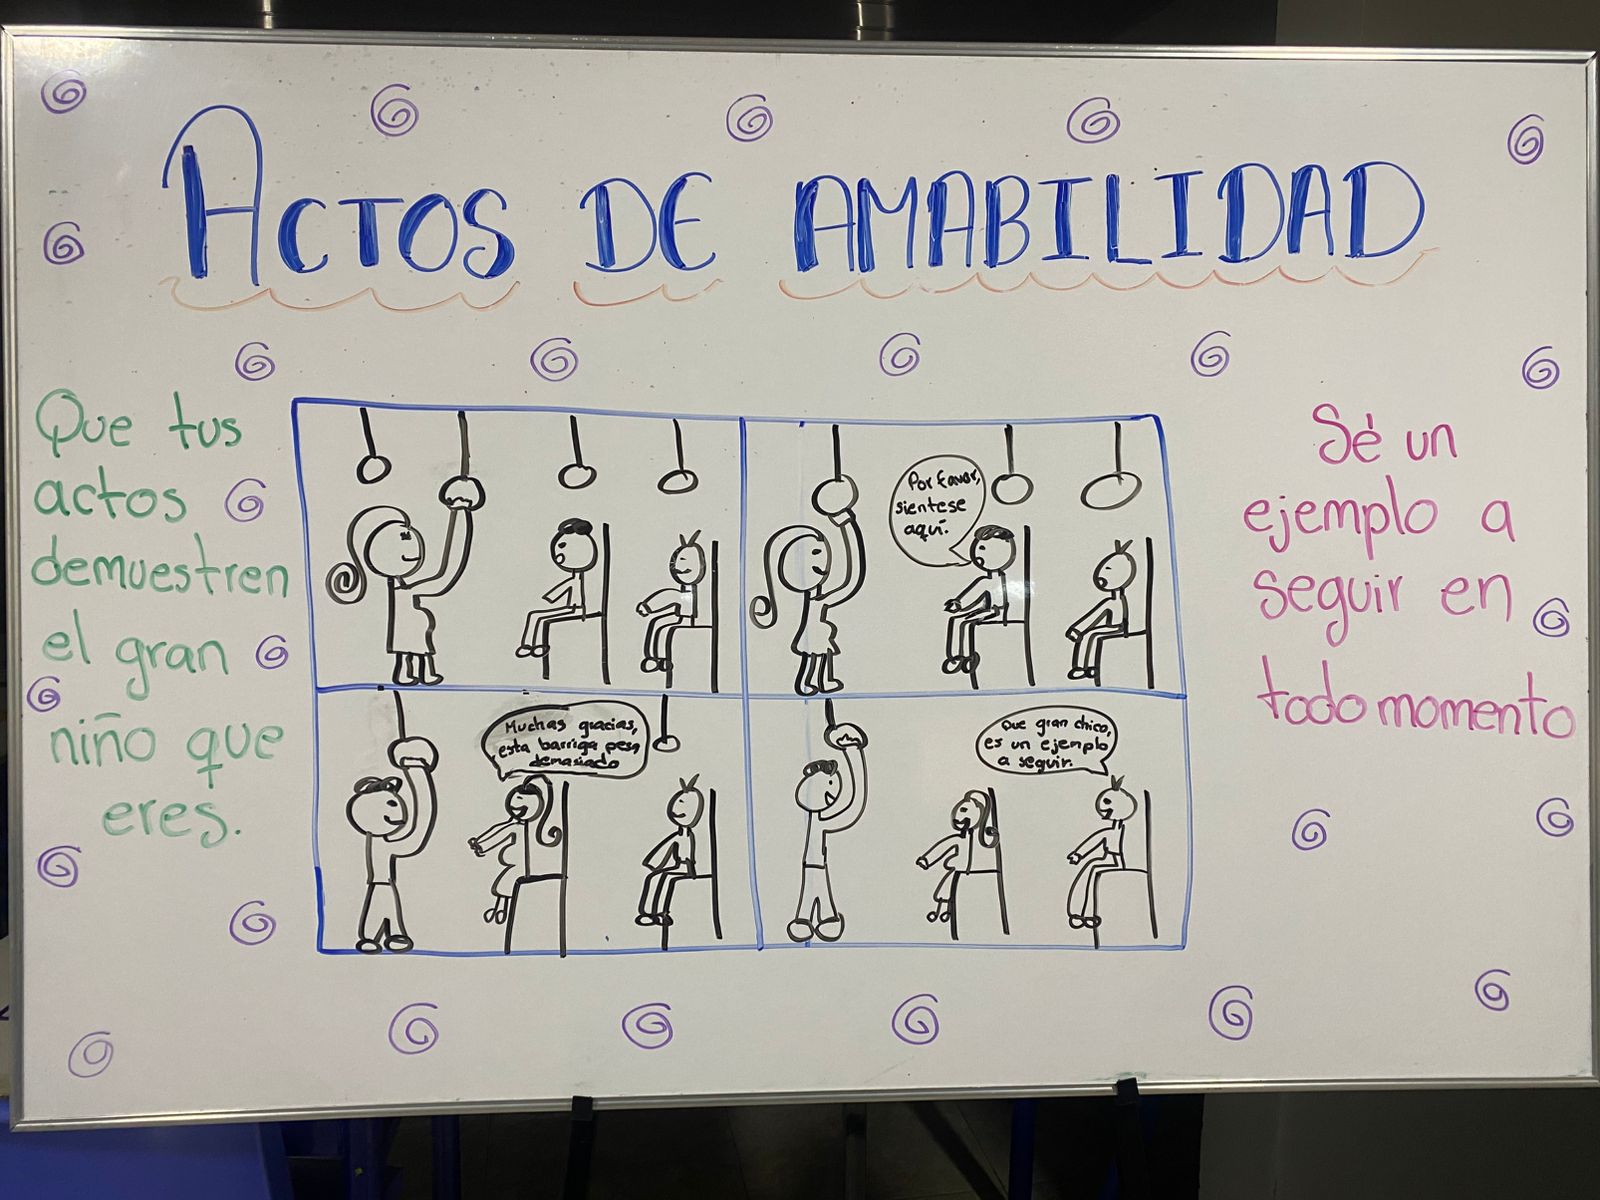 ACTOS DE AMABILIDAD
Que tus
actos
demuestren
el gran
niño que
eres.
Por favor,
sientese
aquí.
Muchas gracias,
esta barriga pesa
demasiado
Que gran chico,
es un ejemplo
a seguir.
Sé un
ejemplo a
seguir en
todo momento